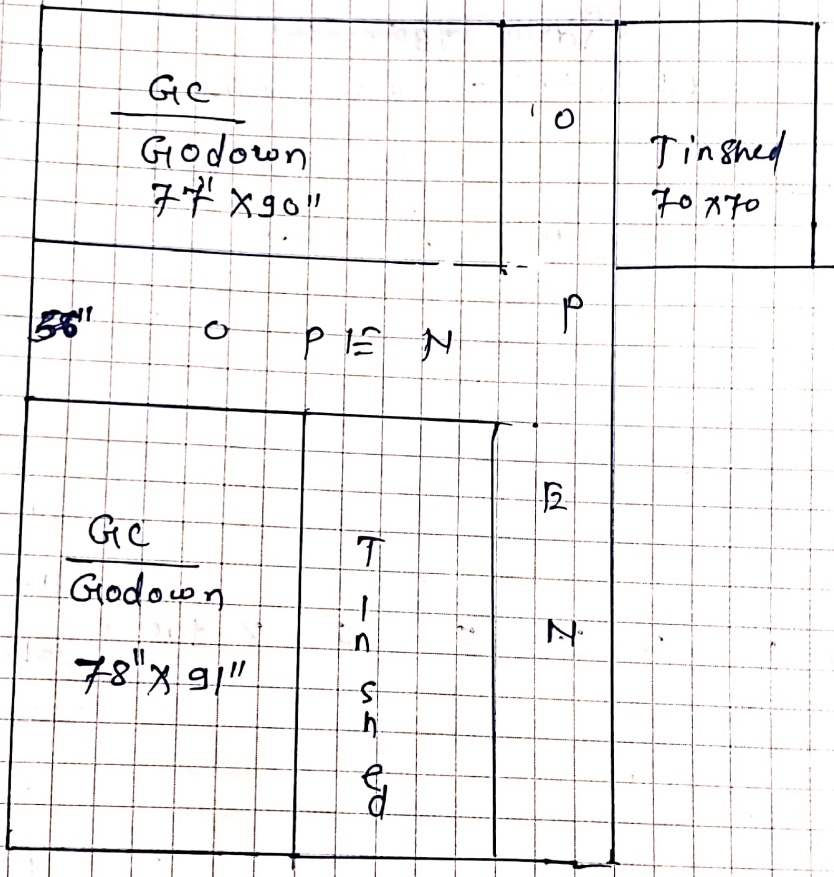 GC
Godown
77" X 90"
O P E N
Tinshed
70 x 70
O P E N
GC
Godown
78" X 91"
Tinshed